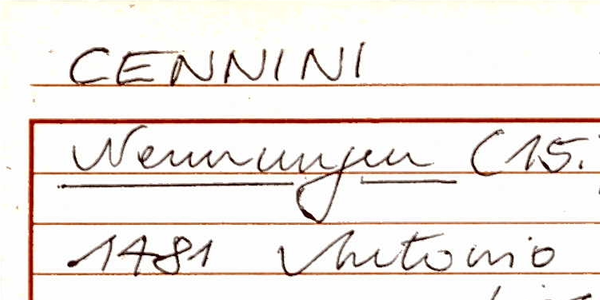 CENNINI
Nennungen (15.
1481 Antonio